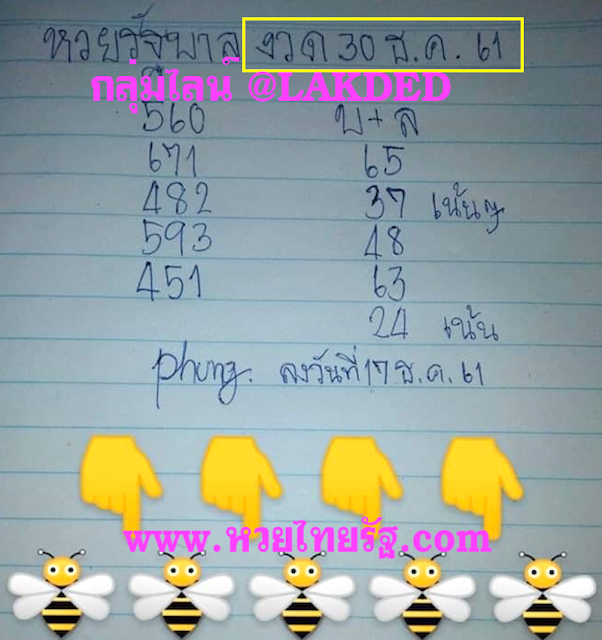 หวยรัฐบาล งวด 30 ธ.ค. 61
กลุ่มไลน์ @LAKDED
560 บ+ล
671 65
482 37 เน้นๆ
593 48
451 63
24 เน้น
phung. ลงวันที่ 17 ธ.ค. 61
www.หวยไทยรัฐ.com